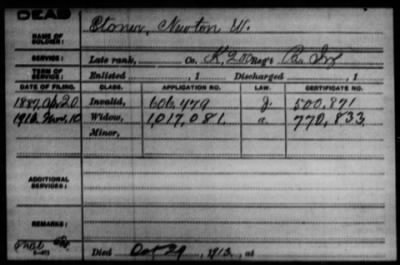 DEAD
NAME OF SOLDIER: Stoner, Newton W.
SERVICE: Late rank, Co. K, 200 Reg't Pa. Inf
TERM OF SERVICE: Enlisted , 1 Discharged , 1
DATE OF FILING. CLASS. APPLICATION NO. LAW. CERTIFICATE NO.
1887 Ap 20 Invalid, 606,479 J. 500,871
1913 Nov. 10 Widow, 1,017,081. a. 770,833
Minor,
ADDITIONAL SERVICES:
REMARKS:
Died Oct 29, 1913, at